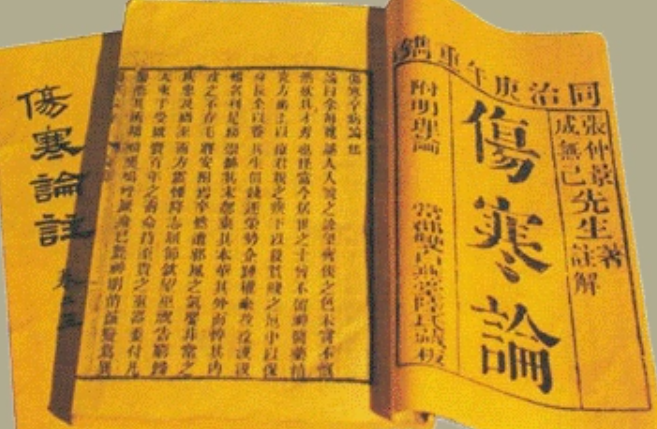 同治庚午重鐫
張仲景著
成無己先生註解
傷寒論
附明理論 常郡雙白燕堂陸氏藏板
傷寒卒病論集
論曰余每覽越人入虢之診望齊侯之色未嘗不慨
然歎其才秀也怪當今居世之士曾不留神醫藥精
究方術上以療君親之疾下以救貧賤之厄中以保
身長全以養其生但競逐榮勢企踵權豪孜孜汲汲
惟名利是務崇飾其末忽棄其本華其外而悴其內
皮之不存毛將安附焉卒然遭邪風之氣嬰非常之
疾患及禍至而方震慄降志屈節欽望巫祝告窮歸
天束手受敗賫百年之壽命持至貴之重器委付凡
醫恣其所措咄嗟嗚呼厥身已斃神明消滅變為異
傷寒論註